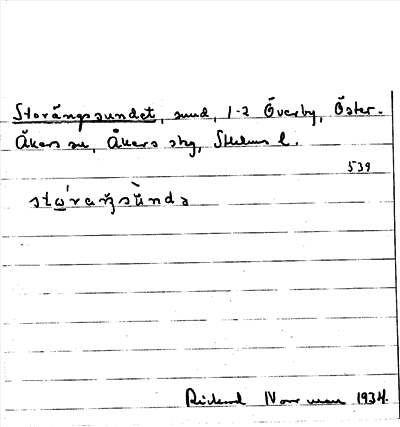 Storängssundet, sund, 1-2 Överby, Öster-
Åkers sn, Åkers skg, Sthlms l.
539
stώraŋsùndə
Rickard Norrman 1934.